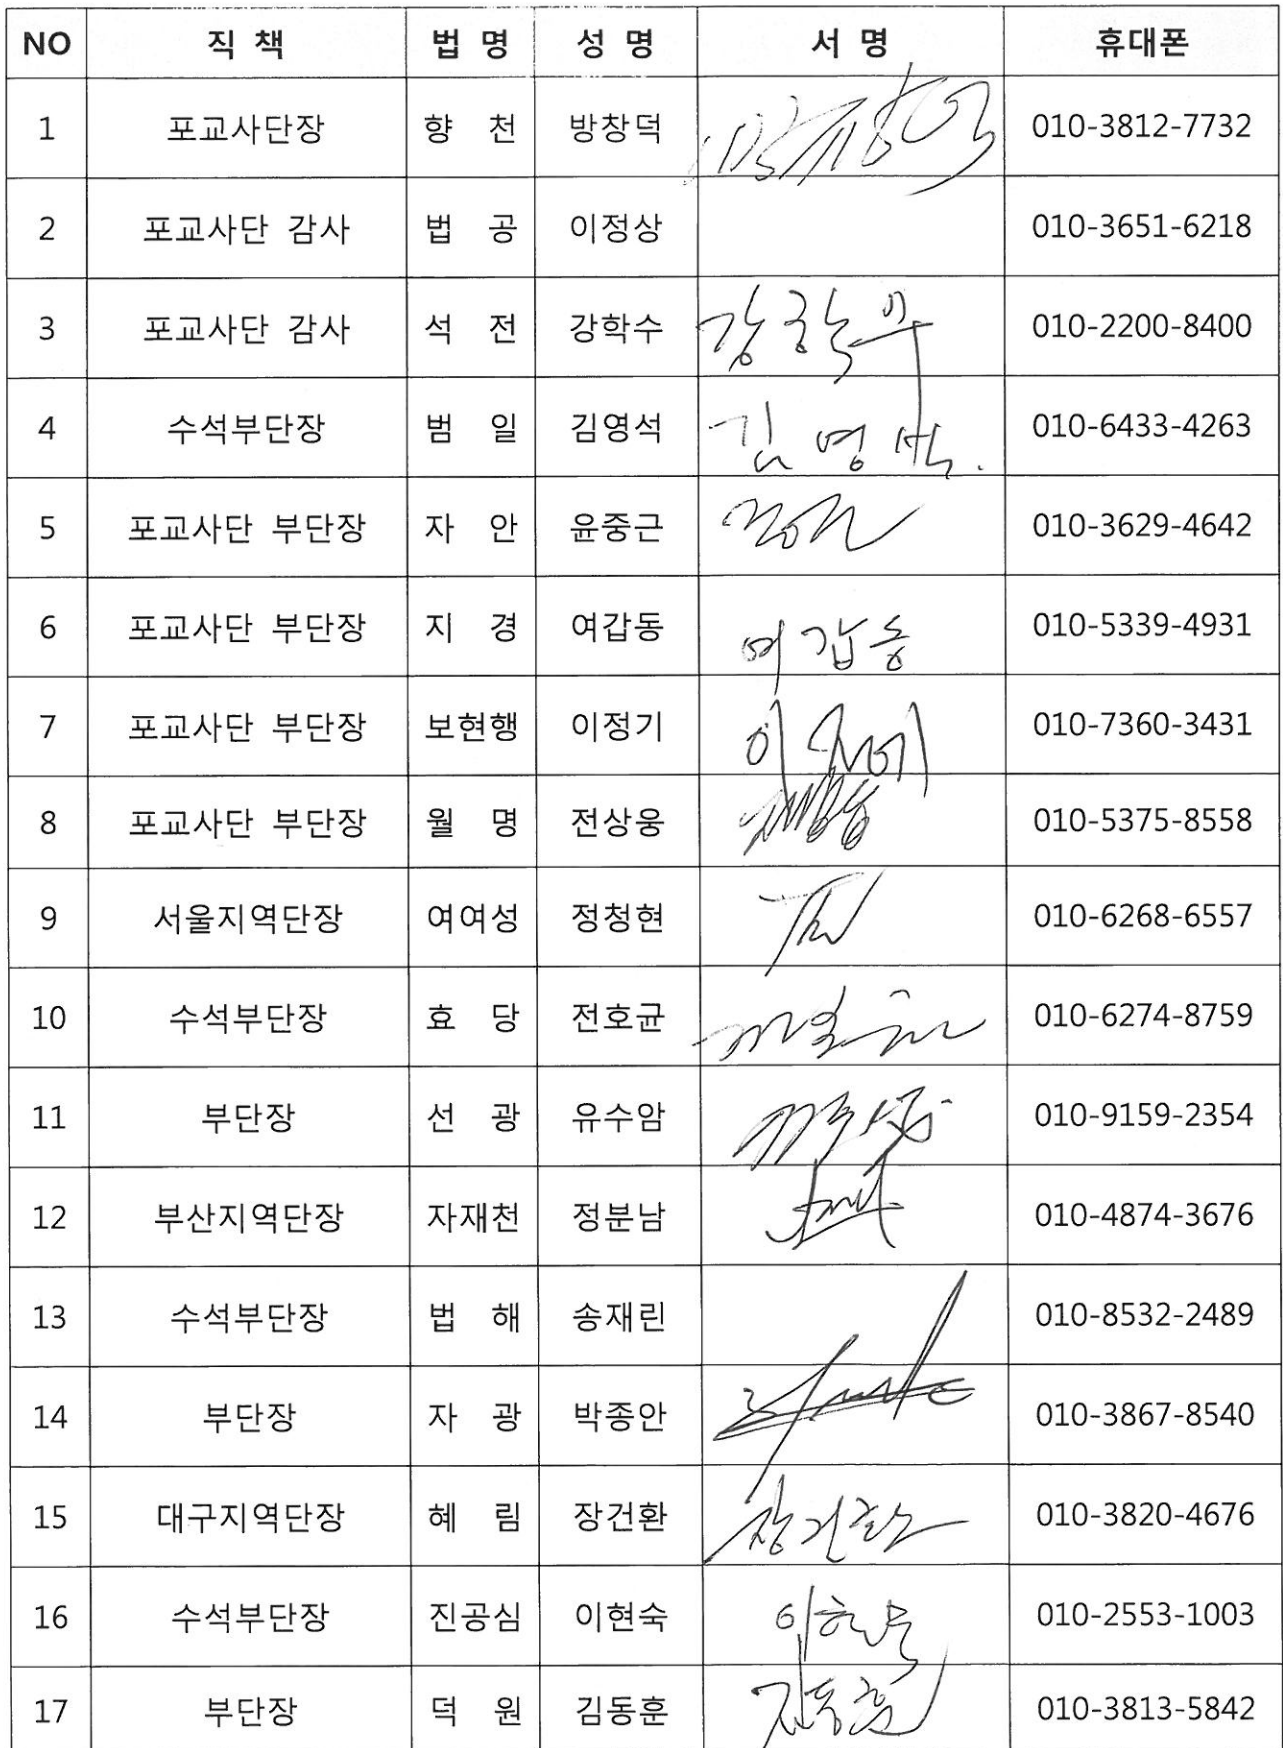 NO 직 책 법 명 성 명 서 명 휴대폰
1 포교사단장 향 천 방창덕 010-3812-7732
2 포교사단 감사 법 공 이정상 010-3651-6218
3 포교사단 감사 석 전 강학수 강학수 010-2200-8400
4 수석부단장 범 일 김영석 김영석. 010-6433-4263
5 포교사단 부단장 자 안 윤중근 010-3629-4642
6 포교사단 부단장 지 경 여갑동 여갑동 010-5339-4931
7 포교사단 부단장 보현행 이정기 이정기 010-7360-3431
8 포교사단 부단장 월 명 전상웅 010-5375-8558
9 서울지역단장 여여성 정청현 010-6268-6557
10 수석부단장 효 당 전호균 010-6274-8759
11 부단장 선 광 유수암 010-9159-2354
12 부산지역단장 자재천 정분남 010-4874-3676
13 수석부단장 법 해 송재린 010-8532-2489
14 부단장 자 광 박종안 010-3867-8540
15 대구지역단장 혜 림 장건환 장건환 010-3820-4676
16 수석부단장 진공심 이현숙 이현숙 010-2553-1003
17 부단장 덕 원 김동훈 김동훈 010-3813-5842